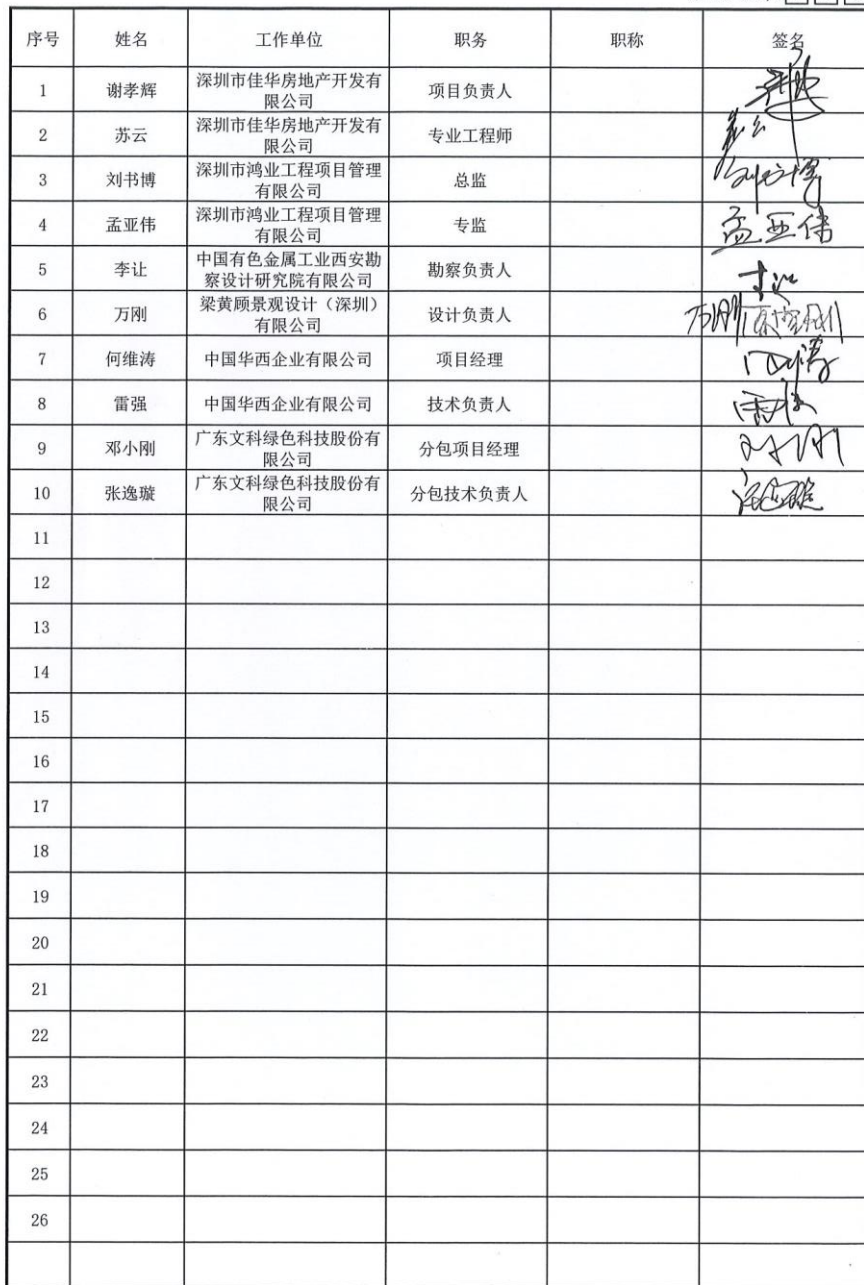 序号 姓名 工作单位 职务 职称 签名
1 谢孝辉 深圳市佳华房地产开发有限公司 项目负责人
2 苏云 深圳市佳华房地产开发有限公司 专业工程师
3 刘书博 深圳市鸿业工程项目管理有限公司 总监
4 孟亚伟 深圳市鸿业工程项目管理有限公司 专监 孟亚伟
5 李让 中国有色金属工业西安勘察设计研究院有限公司 勘察负责人
6 万刚 梁黄顾景观设计（深圳）有限公司 设计负责人 万刚
7 何维涛 中国华西企业有限公司 项目经理
8 雷强 中国华西企业有限公司 技术负责人
9 邓小刚 广东文科绿色科技股份有限公司 分包项目经理
10 张逸璇 广东文科绿色科技股份有限公司 分包技术负责人
11
12
13
14
15
16
17
18
19
20
21
22
23
24
25
26